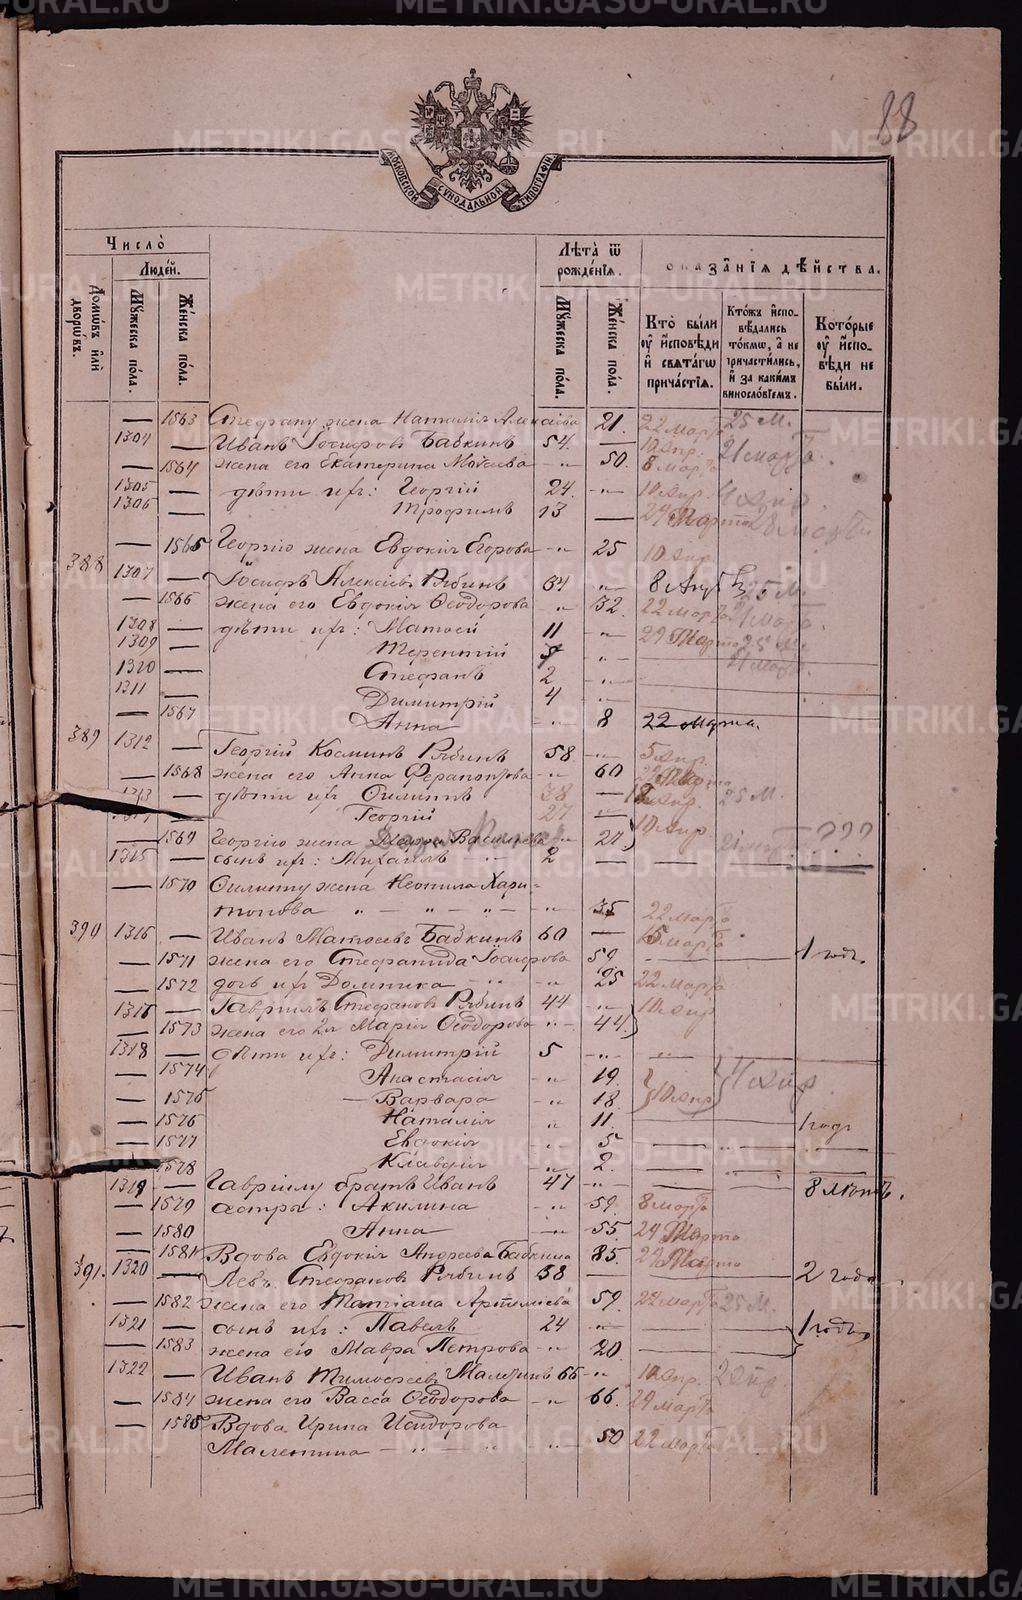 88
МОСКОВСКОЙ СѴНОДАЛЬНОЙ ТИПОГРАФІИ
Число̀
Людей.
Домѡвъ или дворѡвъ.
Мꙋжеска пола.
Женска пола.
Лѣта ѿ рожденїѧ.
Мꙋжеска пола.
Женска пола.
ѡказанїѧ дѣйства.
Кто были ᲂу исповѣди и свѧтагѡ причастїѧ.
Ктожъ исповѣдались токмѡ, а не причастились, и за какимъ винословїемъ.
Которые ᲂу исповѣди не были.
— 1563 Стефану жена Наталія Алексіева 21. 22 марта 25 М.
1304 — Иванъ Іосифовъ Бабкинъ 54. 10 апр. 21 марта.
— 1564 жена его Екатерина Моѵсеева -„- 50. 8 марта
1305 — дѣти ихъ: Георгій 24. -„- 10 апр.
1306 — Трофимъ 13 — 24 Марта 28 марта
— 1565 Георгію жена Евдокія Егорова -„- 25 10 апр.
388 1307 — Іосифъ Алексіевъ Рябинъ 34 „ 8 Апр 25 М.
— 1566 жена его Евдокія Ѳеодорова „ 32. 22 марта 21 марта.
1308 — дѣти ихъ: Матѳей 11 -„- 29 Марта 25 М.
1309 — Терентій 5 „ — 21 марта.
1310 — Стефанъ 2 -„-
1311 — Димитрій 4 „
— 1567 Анна -„- 8 22 марта.
389 1312 — Георгій Косминъ Рябинъ 58 -„- 5 апр.
— 1568 жена его Анна Ферапонтова -„- 60 Марта
1313 — дѣти ихъ Филиппъ 38 — апр. 25 М.
Георгій 27 — 10 апр.
— 1569 Георгію жена Васильева -„- 24 21 марта ???
1315 — сынъ ихъ: Михаилъ „ 2
— 1570 Филиппу жена Неонила Хари-
тонова „ — „ — „ — -„- 35 22 марта
390 1316 — Иванъ Матѳеевъ Бабкинъ 60 — 15 марта
— 1571 жена его Стефанида Іосифова 59. — — 1 годъ.
— 1572 дочь ихъ Домника -„- 25 22 марта
— Гавріилъ Стефановъ Рябинъ 44 -„- 10 апр
— 1573 жена его 2я Марія Ѳеодорова -„- 44.
1318 — дѣти ихъ: Димитрій 5 -„- —
— 1574 Анастасія -„- 19.
— 1575 Варвара -„- 18. 10 апр
— 1576 Наталія „ 11. — 1 годъ
— 1577 Евдокія „ 5
1578 Клавдія „ 2.
1319 — Гавріилу братъ Иванъ 47 -„- — 8 лѣтъ.
— 1579 сестры: Акилина -„- 59. 8 марта
— 1580 Анна — 55. 24 Марта
— 1581 Вдова Евдокія Андреева Бабкина 85. 29 Марта
391. 1320 — Левъ Стефановъ Рябинъ 58 — — 2 года
— 1582 жена его Татіана Артеміева 59. 22 марта 25 М.
1321 — сынъ ихъ: Павелъ 24 „ — 1 годъ
— 1583 жена его Мавра Петрова -„- 20
1322 — Иванъ Тимоѳеевъ Малетинъ 66 -„- 10 апр.
— 1584 жена его Васса Ѳеодорова -„- 66. 29 марта
— 1585 Вдова Ирина Исидорова
Малетина — „ — „ -„- 50 22 марта
METRIKI.GASO-URAL.RU